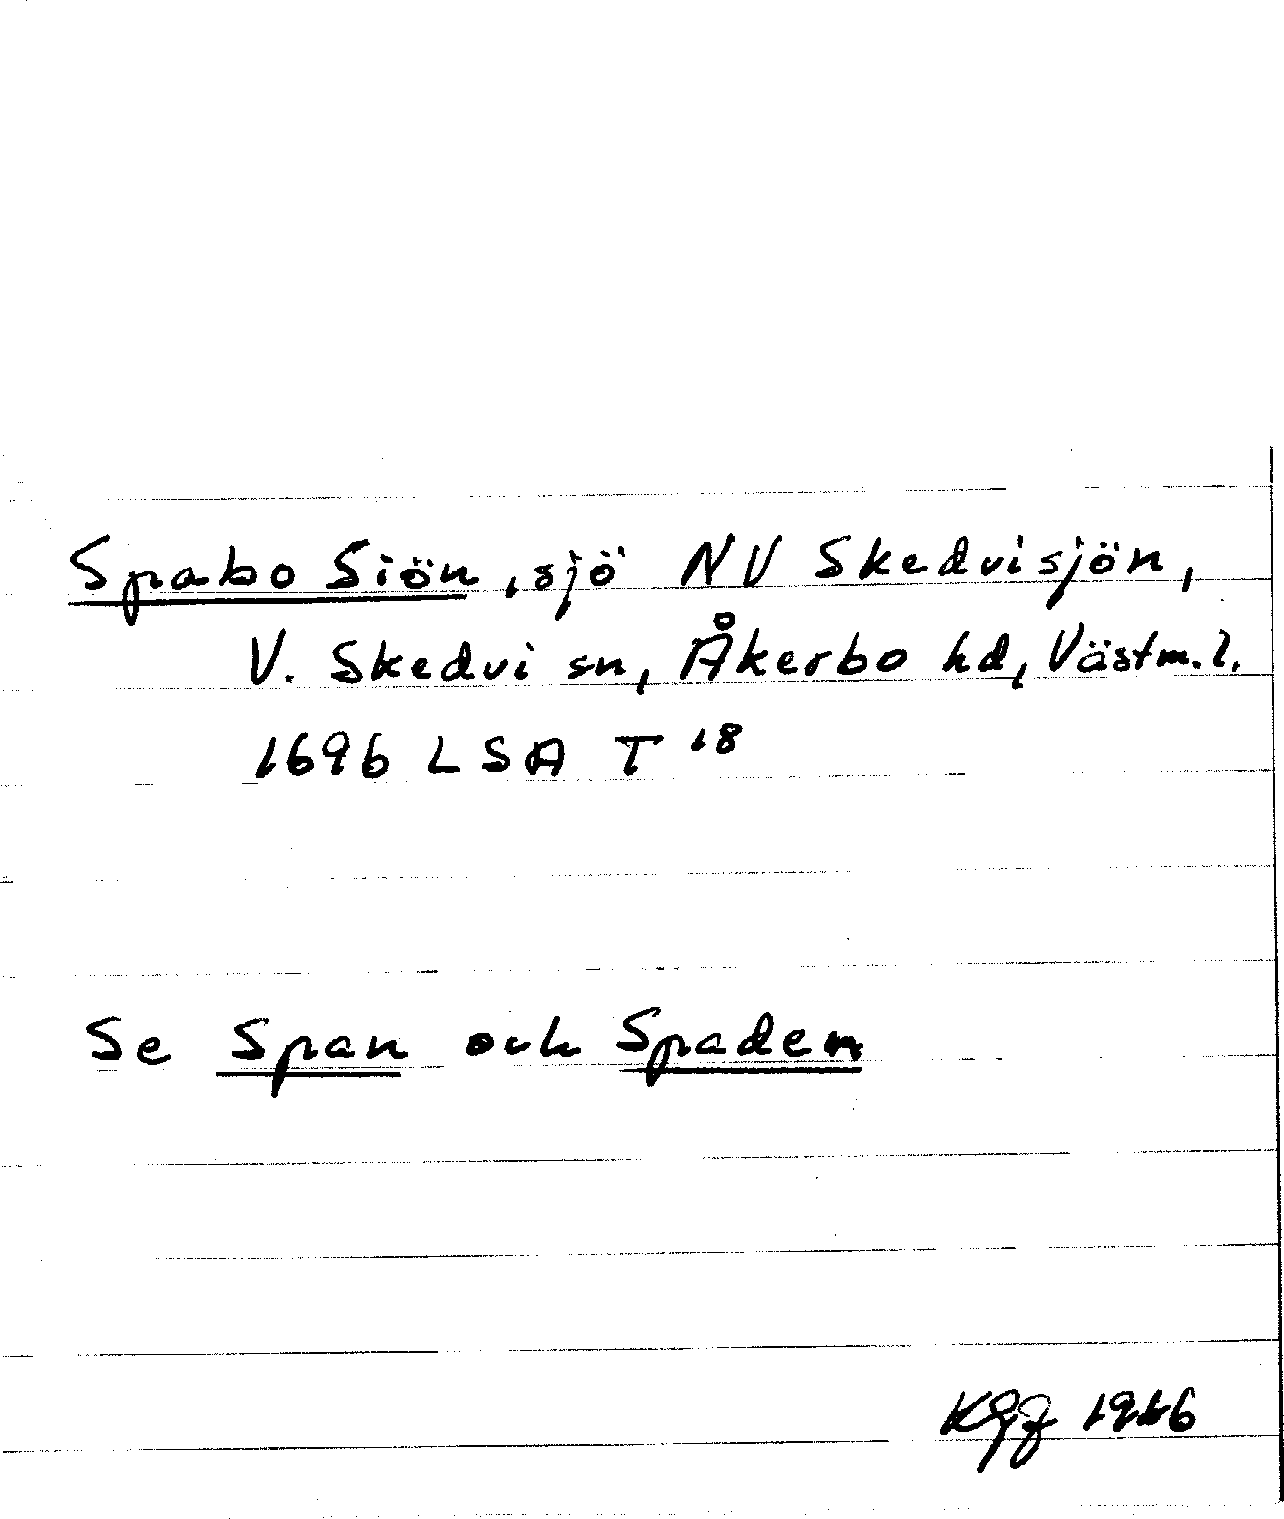 Spabo Siön, sjö NV Skedvisjön,
V. Skedvi sn, Åkerbo hd, Västm. l.
1696 LSA T 18
Se Span och Spaden
KGJ